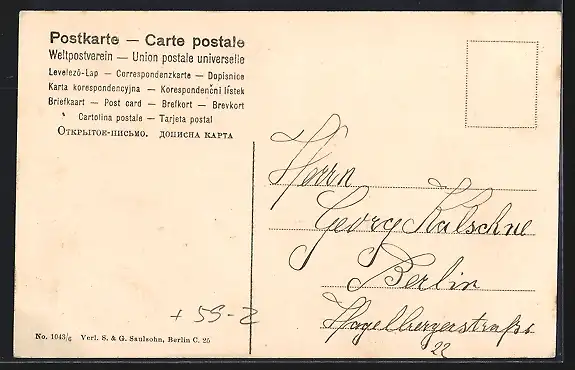 Postkarte — Carte postale
Weltpostverein — Union postale universelle
Levelező-Lap — Correspondenzkarte — Dopisnice
Karta korespondencyjna — Korespondenční lístek
Briefkaart — Post card — Brefkort — Brevkort
Cartolina postale — Tarjeta postal
Открытое-письмо. дописна карта
Herrn
Georg Kalschne
Berlin
Hagelbergerstraße
22
+ 59-2
No. 1043/6 Verl. S. & G. Saulsohn, Berlin C. 25